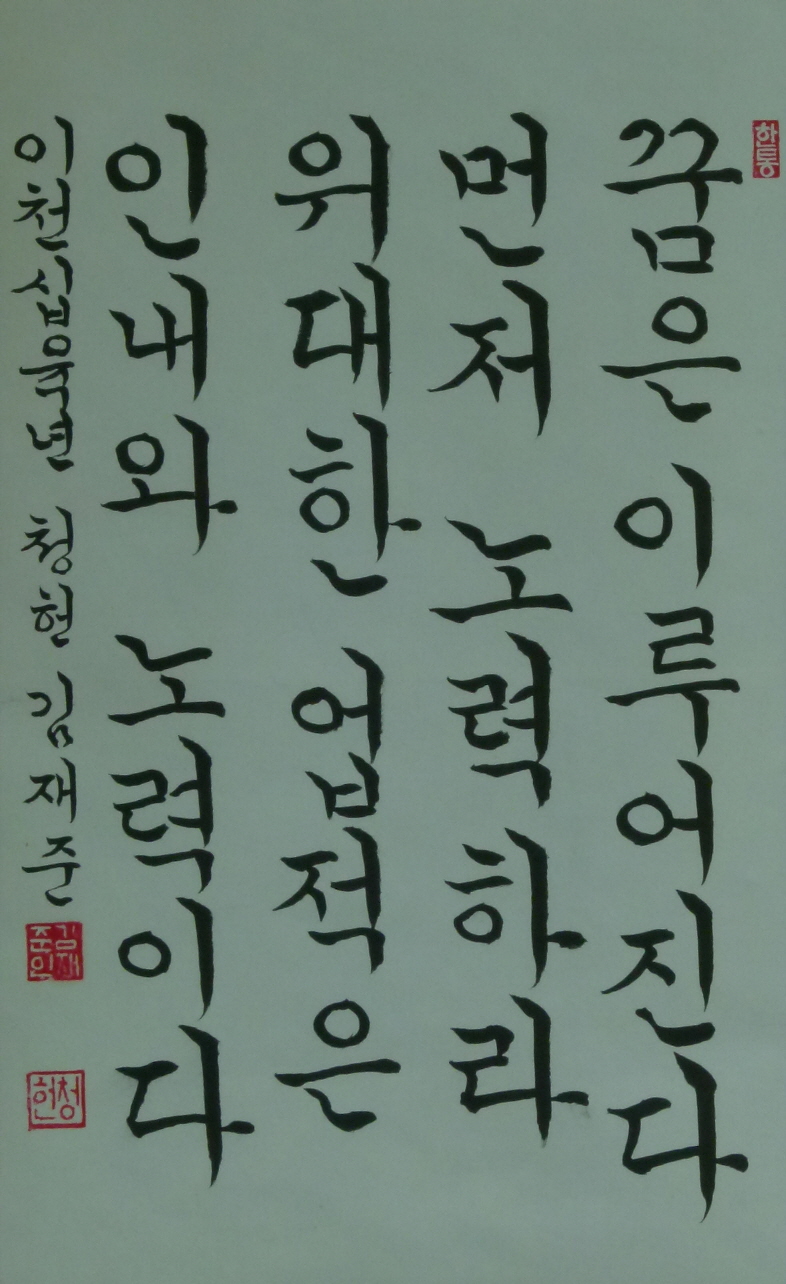 한통
꿈은 이루어진다
먼저 노력하라
위대한 업적은
인내와 노력이다
이천십육년 청현 김재준
김재준인
청현